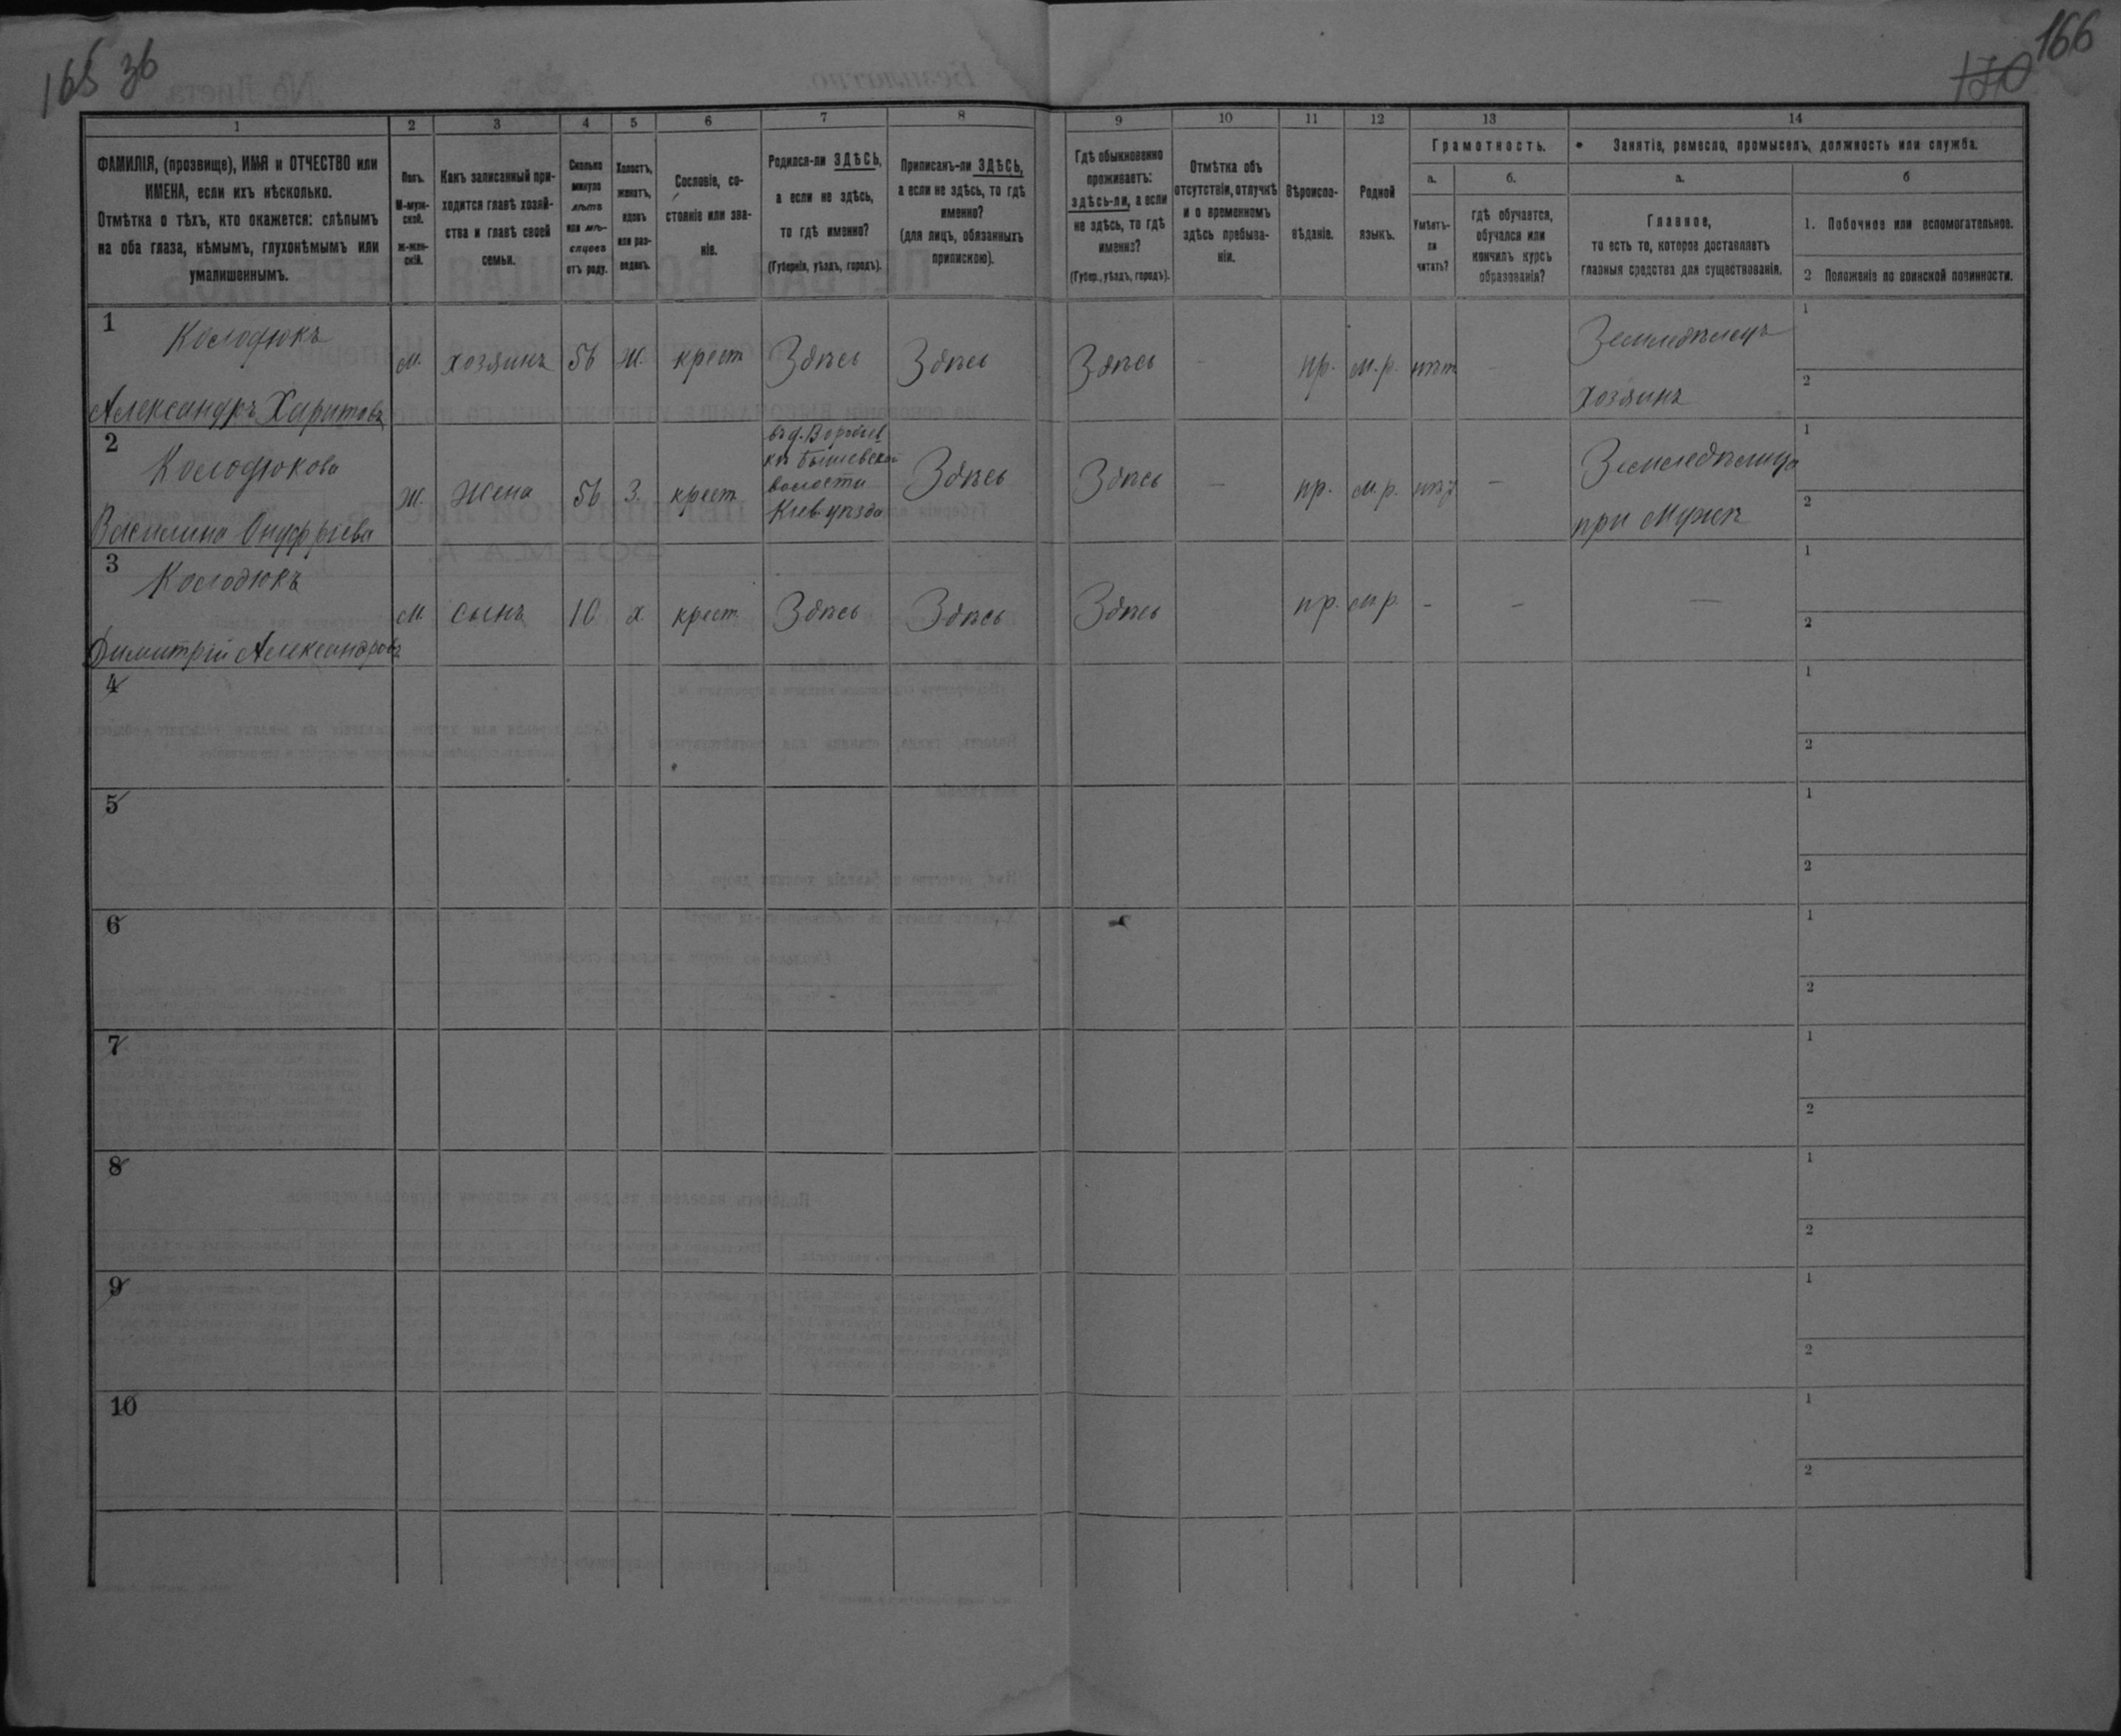 165 зв
170 166
1 2 3 4 5 6 7 8 9 10 11 12 13 14
ФАМИЛІЯ, (прозвище), ИМЯ и ОТЧЕСТВО или
ИМЕНА, если ихъ нѣсколько.
Отмѣтка о тѣхъ, кто окажется: слѣпымъ
на оба глаза, нѣмымъ, глухонѣмымъ или
умалишеннымъ.
Полъ.
М-муж-
ской.
ж-жен-
скій.
Какъ записанный при-
ходится главѣ хозяй-
ства и главѣ своей
семьи.
Сколько
минуло
лѣтъ
или мѣ-
сяцевъ
отъ роду.
Холостъ,
женатъ,
вдовъ
или раз-
веденъ.
Сословіе, со-
стояніе или зва-
ніе.
Родился-ли ЗДѢСЬ,
а если не здѣсь,
то гдѣ именно?
(Губернія, уѣздъ, городъ).
Приписанъ-ли ЗДѢСЬ,
а если не здѣсь, то гдѣ
именно?
(для лицъ, обязанныхъ
припискою).
Гдѣ обыкновенно
проживаетъ:
здѣсь-ли, а если
не здѣсь, то гдѣ
именно?
(Губер., уѣздъ, городъ).
Отмѣтка объ
отсутствіи, отлучкѣ
и о временномъ
здѣсь пребыва-
ніи.
Вѣроиспо-
вѣданіе.
Родной
языкъ.
Грамотность.
а.
Умѣетъ-
ли
читать?
б.
гдѣ обучается,
обучался или
кончилъ курсъ
образованія?
Занятіе, ремесло, промыселъ, должность или служба.
а.
Главное,
то есть то, которое доставляетъ
главныя средства для существованія.
б
1. Побочное или вспомогательное.
2 Положеніе по воинской повинности.
1 Колодюкъ
Александръ Харитовъ
м. хозяинъ 56 ж. крест Здѣсь Здѣсь Здѣсь - пр. м.р. нѣт - Земледѣлецъ
хозяинъ
1
2
2 Колодюкова
Василина Онуфріева
ж. жена 56 З. крест
въ д. Воробіев
кѣ Бышевской
волости
Кіев. уѣзда
Здѣсь Здѣсь - пр. м.р. нѣт - Земледѣлица
при мужѣ
1
2
3 Колодюкъ
Димитрій Александровъ
м. сынъ 10 х. крест. Здѣсь Здѣсь Здѣсь пр. м.р. - - -
1
2
4
1
2
5
1
2
6
1
2
7
1
2
8
1
2
9
1
2
10
1
2